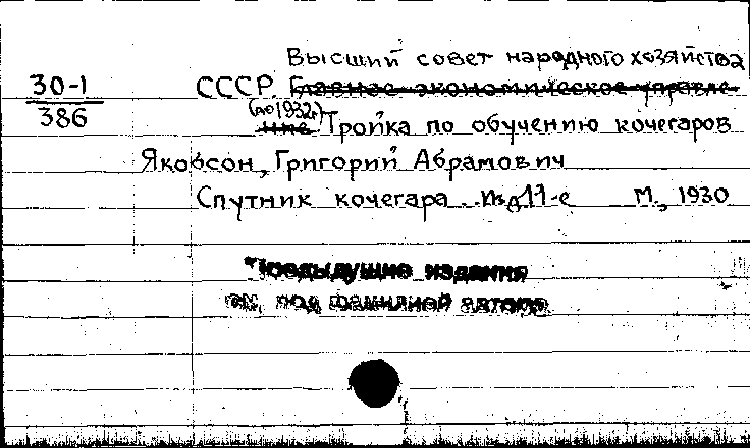 Высший совет народного хозяйства
30-1 СССР. Главное экономическое управле-
386 (до 1932г.)
ние Тройка по обучению кочегаров
Якобсон, Григорий Абрамович
Спутник кочегара. Изд 11-е М., 1930
Предыдущие издания
см. под фамилией автора